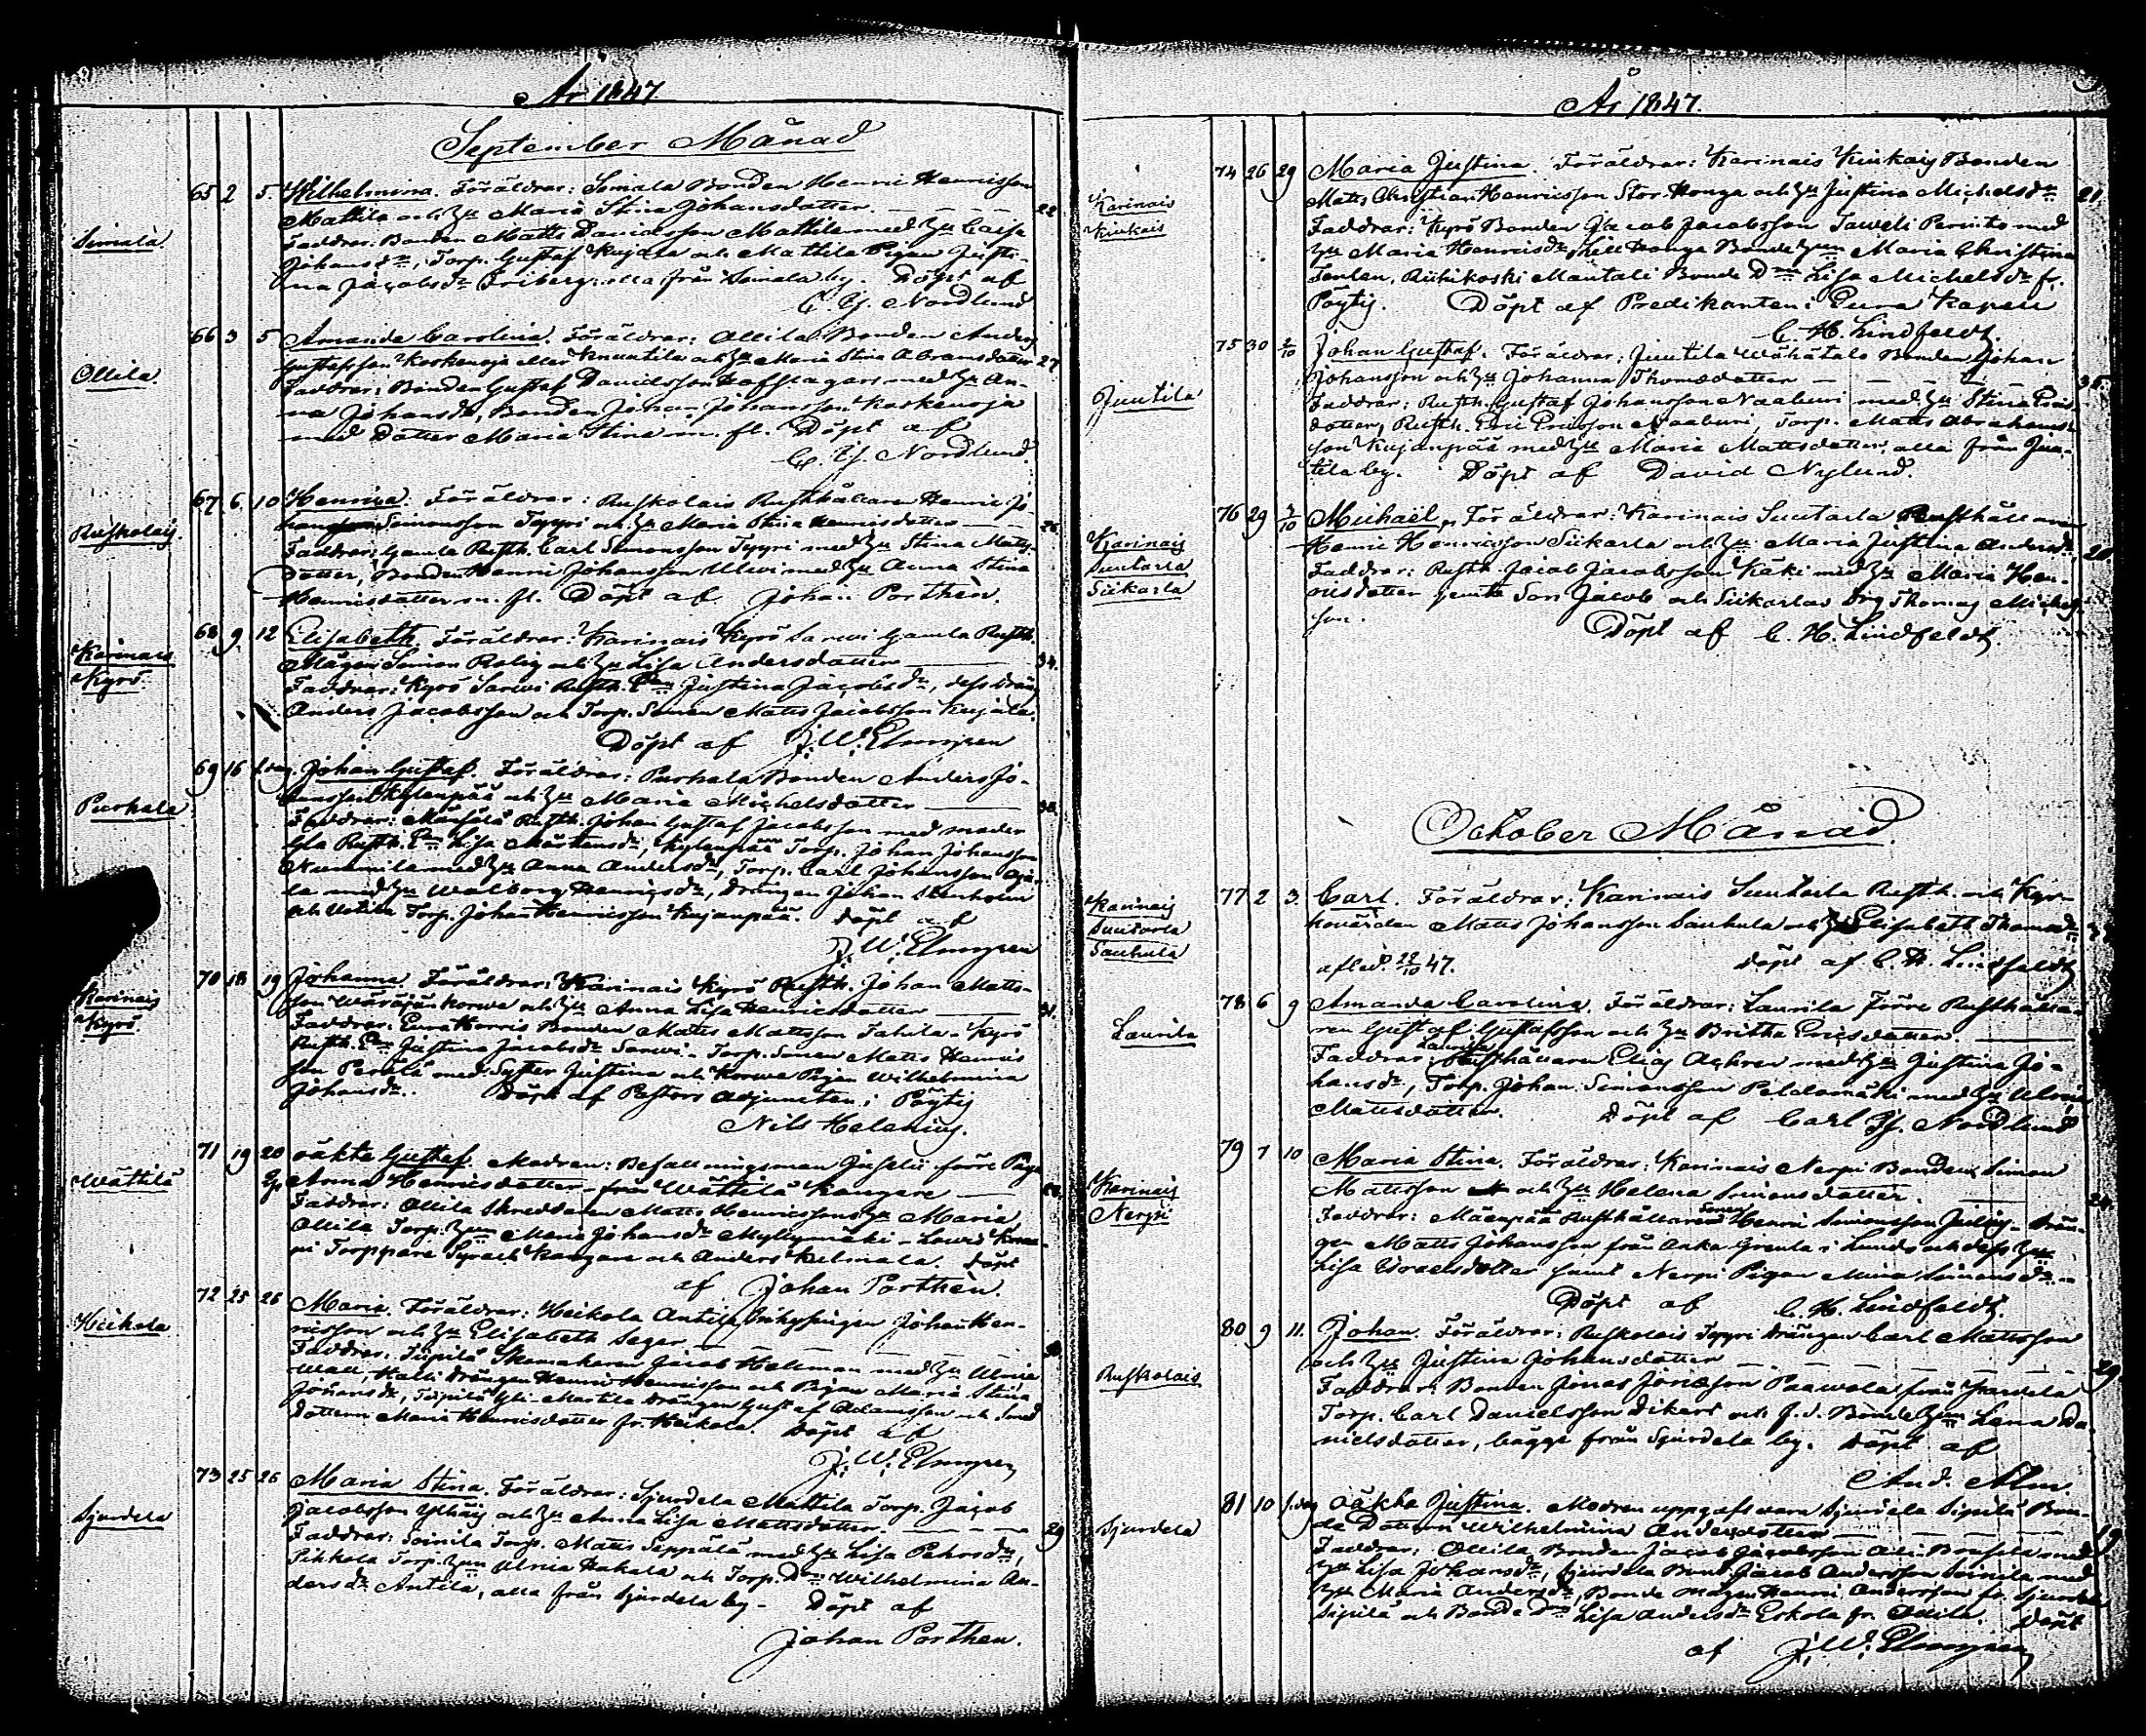 År 1847.
September Månad
Simala
65 2 5. Wilhelmina. Föräldrar: Simala Bonden Henric Henricsson
Mattila och Hu Maria Stina Johansdotter. 22
Faddrar: Bonden Matts Danielsson Mattila med Hu Caisa
Johansdr, Torp. Gustaf Kujala och Mattila Pigan Justi-
na Jacobsdr Friberg: alla från Simala by. Döpt af
C. Hj. Nordlund
Ollila.
66 3 5 Amanda Carolina. Föräldrar: Ollila Bonden Anders
Gustafsson Koskenoja eller Knuutila och Hu Maria Stina Abramsdotter 27
Faddrar: Bonden Gustaf Danielsson Hofslagars med Hu An-
na Johansdr, Bonden Johan Johansson Koskenoja
med Dotter Maria Stina m. fl. Döpt af
C. Hj. Nordlund.
Ruskolais.
67 6. 10 Henrica. Föräldrar: Ruskolais Rusthållaren Henric Jo-
Simonsson Tyyri och Hu Maria Stina Henricsdotter
Faddrar: Gamla Rusth. Carl Simonsson Tyyri med Hu Stina Matts-
dotter, Bonden Henric Johansson Ulvi med Hu Anna Stina
Henricsdotter m. fl. Döpt af Johan Porthen.
Karinais
Kyrö.
68 9. 12 Elisabeth. Föräldrar: Karinais Kyrö Sarvi Gamla Rusth.
Mågen Simon Rolig och Hu Lisa Andersdotter 34.
Faddrar: Kyrö Sarvi Rusth. Justina Jacobsdr, dess dräng
Anders Jacobsson och Torp. Sonen Matts Jacobsson Kujala.
Döpt af J. W. Elmgren
Purhala
69 16 s. dag. Johan Gustaf. Föräldrar: Purhala Bonden Anders Jo-
hansson Kylenpää och Hu Maria Michelsdotter 30.
Faddrar: Rusth. Johan Gustaf Jacobsson med moder
Gla Rusth. Lisa Mårtensdr, Kylenpää Torp. Johan Johansson
Nummila med Hu Anna Andersdr, Torp. Carl Johansson
med Hu Walborg Henricsdr, Drängen Johan Stenholm
och Uotila Torp. Johan Henricsson Kujanpää. Döpt af
J. W. Elmgren
Karinais
Kyrö.
70 18 19 Johanna. Föräldrar: Karinais Kyrö Rusth. Johan Matts-
son och Hu Anna Lisa Henricsdotter 31.
Faddrar: Eura Bonden Matts Mattsson Tahila - Kyrö
Rusth. Justina Jacobsdr Sarwi - Torp. Sonen Matts Henrics
son Perälä med Syster Justina och Korwa Pigan Wilhelmina
Johansdr. Döpt af Pastors Adjuncten i Pöytis
Nils Helenius.
Wättilä
71 19 20 oäkta Gustaf. Modren: Befallningsman förre Piga
Anna Henricsdotter från Wättilä Kangare
Faddrar: Ollila Skreddaren Matts Henricssons Hu Maria
Ollila Torp. Hun Maria Johansdr Myllymäki - Lewis
Torppare Kangare och Anders Kelmala. Döpt
af Johan Porthen.
Heikola
72 25 26 Maria. Föräldrar: Heikola Antila Inhysingen Johan Hen-
ricsson och Hu Elisabeth Seger
Faddrar: Tiipilä Skomakaren Jacob Hellman med Hu Ulrica
Wall, Halli drängen Henric Henricsson och Pigan Maria Stina
Johansdr, Tiipilä Yli-Martila drängen Gustaf Adamsson och Smed
dottern Maria Henricsdotter fr. Heikola. Döpt af
J. W. Elmgren
Sjurdela
73 25 26 Maria Stina. Föräldrar: Sjurdela Mattila Torp. Jacob
Jacobsson och Hu Anna Lisa Mattsdotter. 29
Faddrar: Soinila Torp. Matts Seppälä med Hu Lisa Pehrsdr,
Pikkola Torp. Hun Ulrica Hakala och Torp. Dr Wilhelmina An-
dersdr Antila, alla från Sjurdela by - Döpt af
Johan Porthen.
År 1847.
Karinais
Kiukais
74 26 29 Maria Justina. Föräldrar: Karinais Kiukais Bonden
Matts Christian Henricsson Stor Honga och Hu Justina Michelsdr 21.
Faddrar: Kyrö Bonden Jacob Jacobsson Taweli Pernito med
Hu Maria Henricsdr, Lill Honga Bonde Hun Maria Christina
Riihikoski Mantali Bonde Dr Lisa Michelsdr fr.
Pöytis. Döpt af Predikanten i Eura Kapell
C. H. Lindfeldt.
Juutila
75 30 2/10 Johan Gustaf. Föräldrar: Juutila Wähätalo Bonden Johan
Johansson och Hu Johanna Thomsdotter
Faddrar: Rusth. Gustaf Johansson Naaburi med Hu Stina Erics
dotter, Rusth. Eric Ericsson Naaburi, Torp. Matts Abrahams-
son Kujanpää med Hu Maria Mattsdotter, alla från Juu-
tila by. Döpt af David Nylund.
Karinais
Suutarla
Siikarla
76 29 3/10 Michaël. Föräldrar: Karinais Suutarla Rusthållaren
Henric Henricsson Siikarla och Hu Maria Justina Andersdr. 20.
Faddrar: Rusth. Jacob Jacobsson Käki med Hu Maria Hen-
ricsdotter jemte Son Jacob och Siikarlas Drg Thomas Michels-
son. Döpt af C. H. Lindfeldt.
October Månad.
Karinais
Suutarla
Sauhula
77 2 3. Carl. Föräldrar: Karinais Suutarla Rusth. och Kyr-
kovärden Matts Johansson Sauhula och Hu Elisabeth Thomasdr
afled. 22/10 47. Döpt af C. H. Lindfeldt
Laurila
78 6 9 Amanda Carolina. Föräldrar: Laurila Förre Rusthålla-
ren Gustaf Gustafsson och Hu Britha Ericsdotter.
Faddrar: Laurila Rusthållaren Elias Achrén med Hu Justina Jo-
hansdr, Torp. Johan Simonsson Peldomäki med Hu Ulrica
Mattsdotter. Döpt af Carl Hj. Nordlund
Karinais
Nerpi
79 7 10 Maria Stina. Föräldrar: Karinais Nerpi Bonden Simon
Mattsson och Hu Helena Simonsdotter. 24.
Faddrar: Mäenpää Rusthållare Sonen Henric Simonsson Jullig - drän-
gen Matts Johansson från Anka Grenla i Lundo och dess Hu
Lisa Israelsdotter samt Nerpi Pigan Mina Simonsdr -
Döpt af C. H. Lindfeldt.
Ruskolais
80 9 11. Johan. Föräldrar: Ruskolais Tyyri drängen Carl Mattsson
och Hu Justina Johansdotter 29
Faddrar: Bonden Jonas Jonasson Paawola från Sjurdela
Torp. Carl Danielsson Dikert och f. d. Bonde Hun Lena Da-
nielsdotter, bägge från Sjurdela by. Döpt af
And. Alm.
Sjurdela
81 10 s. dag oäkta Justina. Modren uppgafs vara Sjurdela Sipilä Bon-
de Dottern Wilhelmina Andersdotter 19
Faddrar: Ollila Bonden Jacob Jacobsson med
Hu Lisa Johansdr, Sjurdela Bond. Jacob Andersson Soinila med
Hu Maria Andersdr, Bonde Mågen Henric Andersson fr. Sjurdela
Sipilä och Bonde Dr Lisa Andersdr Eskola fr. Ollila. Döpt
af J. W. Elmgren